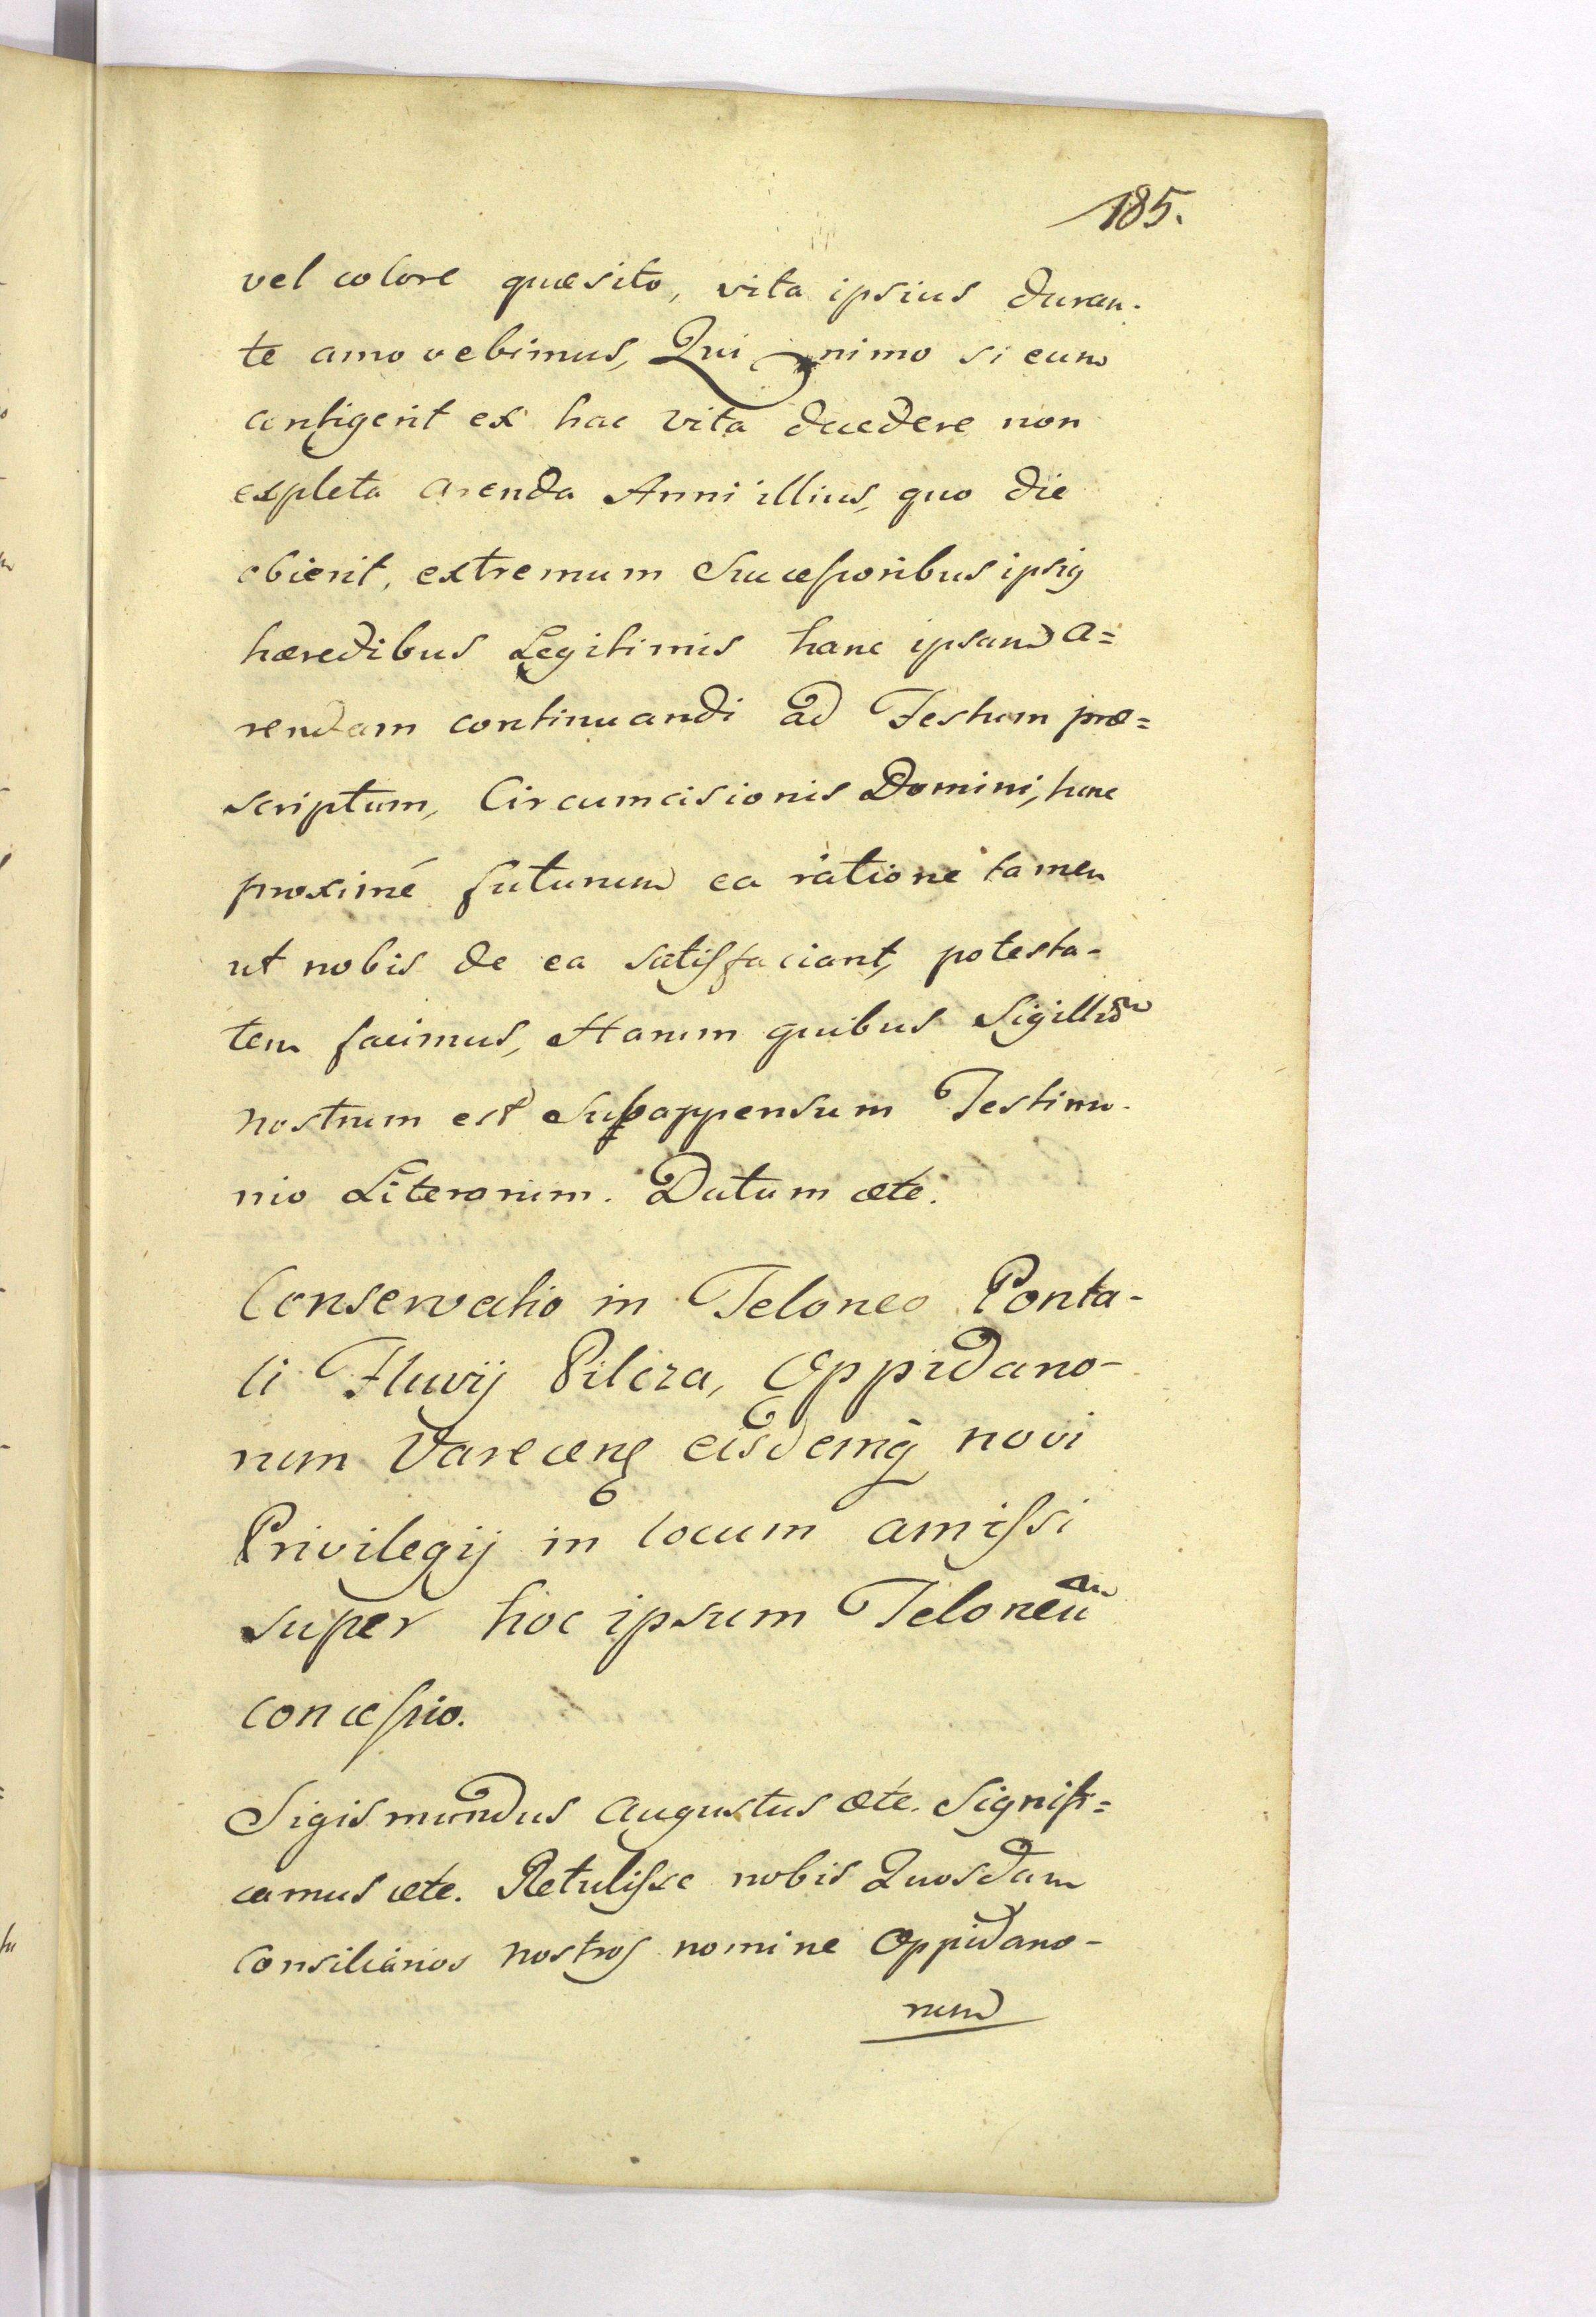 185.
vel colore quæsito, vita ipsius duran-
te amovebimus, Quinimo si eum
contigerit ex hac vita decedere non
expleta arenda Anni illius, quo die
obierit, extremum Successoribus ipsiꝰ
hæredibus Legitimis hanc ipsam a=
rendam continuandi ad Festum præ=
scriptum, Circumcisionis Domini, hinc
proximé futurum ea ratione tamen
ut nobis de ea satisfaciant, potesta-
tem facimus, Harum quibus Sigillũ
nostrum est Subappensum Testimo-
nio Literarum. Datum ætc.
Conservatio in Teloneo Ponta-
li Fluvij Pilcza, Oppidano-
rum Varecens eisdemq̃ novi
Privilegij in locum amissi
super hoc ipsum Teloneũ
concessio.
Sigismundus Augustus ætc. Signifi=
camus ætc. Retulisse nobis Quosdam
consiliarios nostros nomine Oppidano-
rum